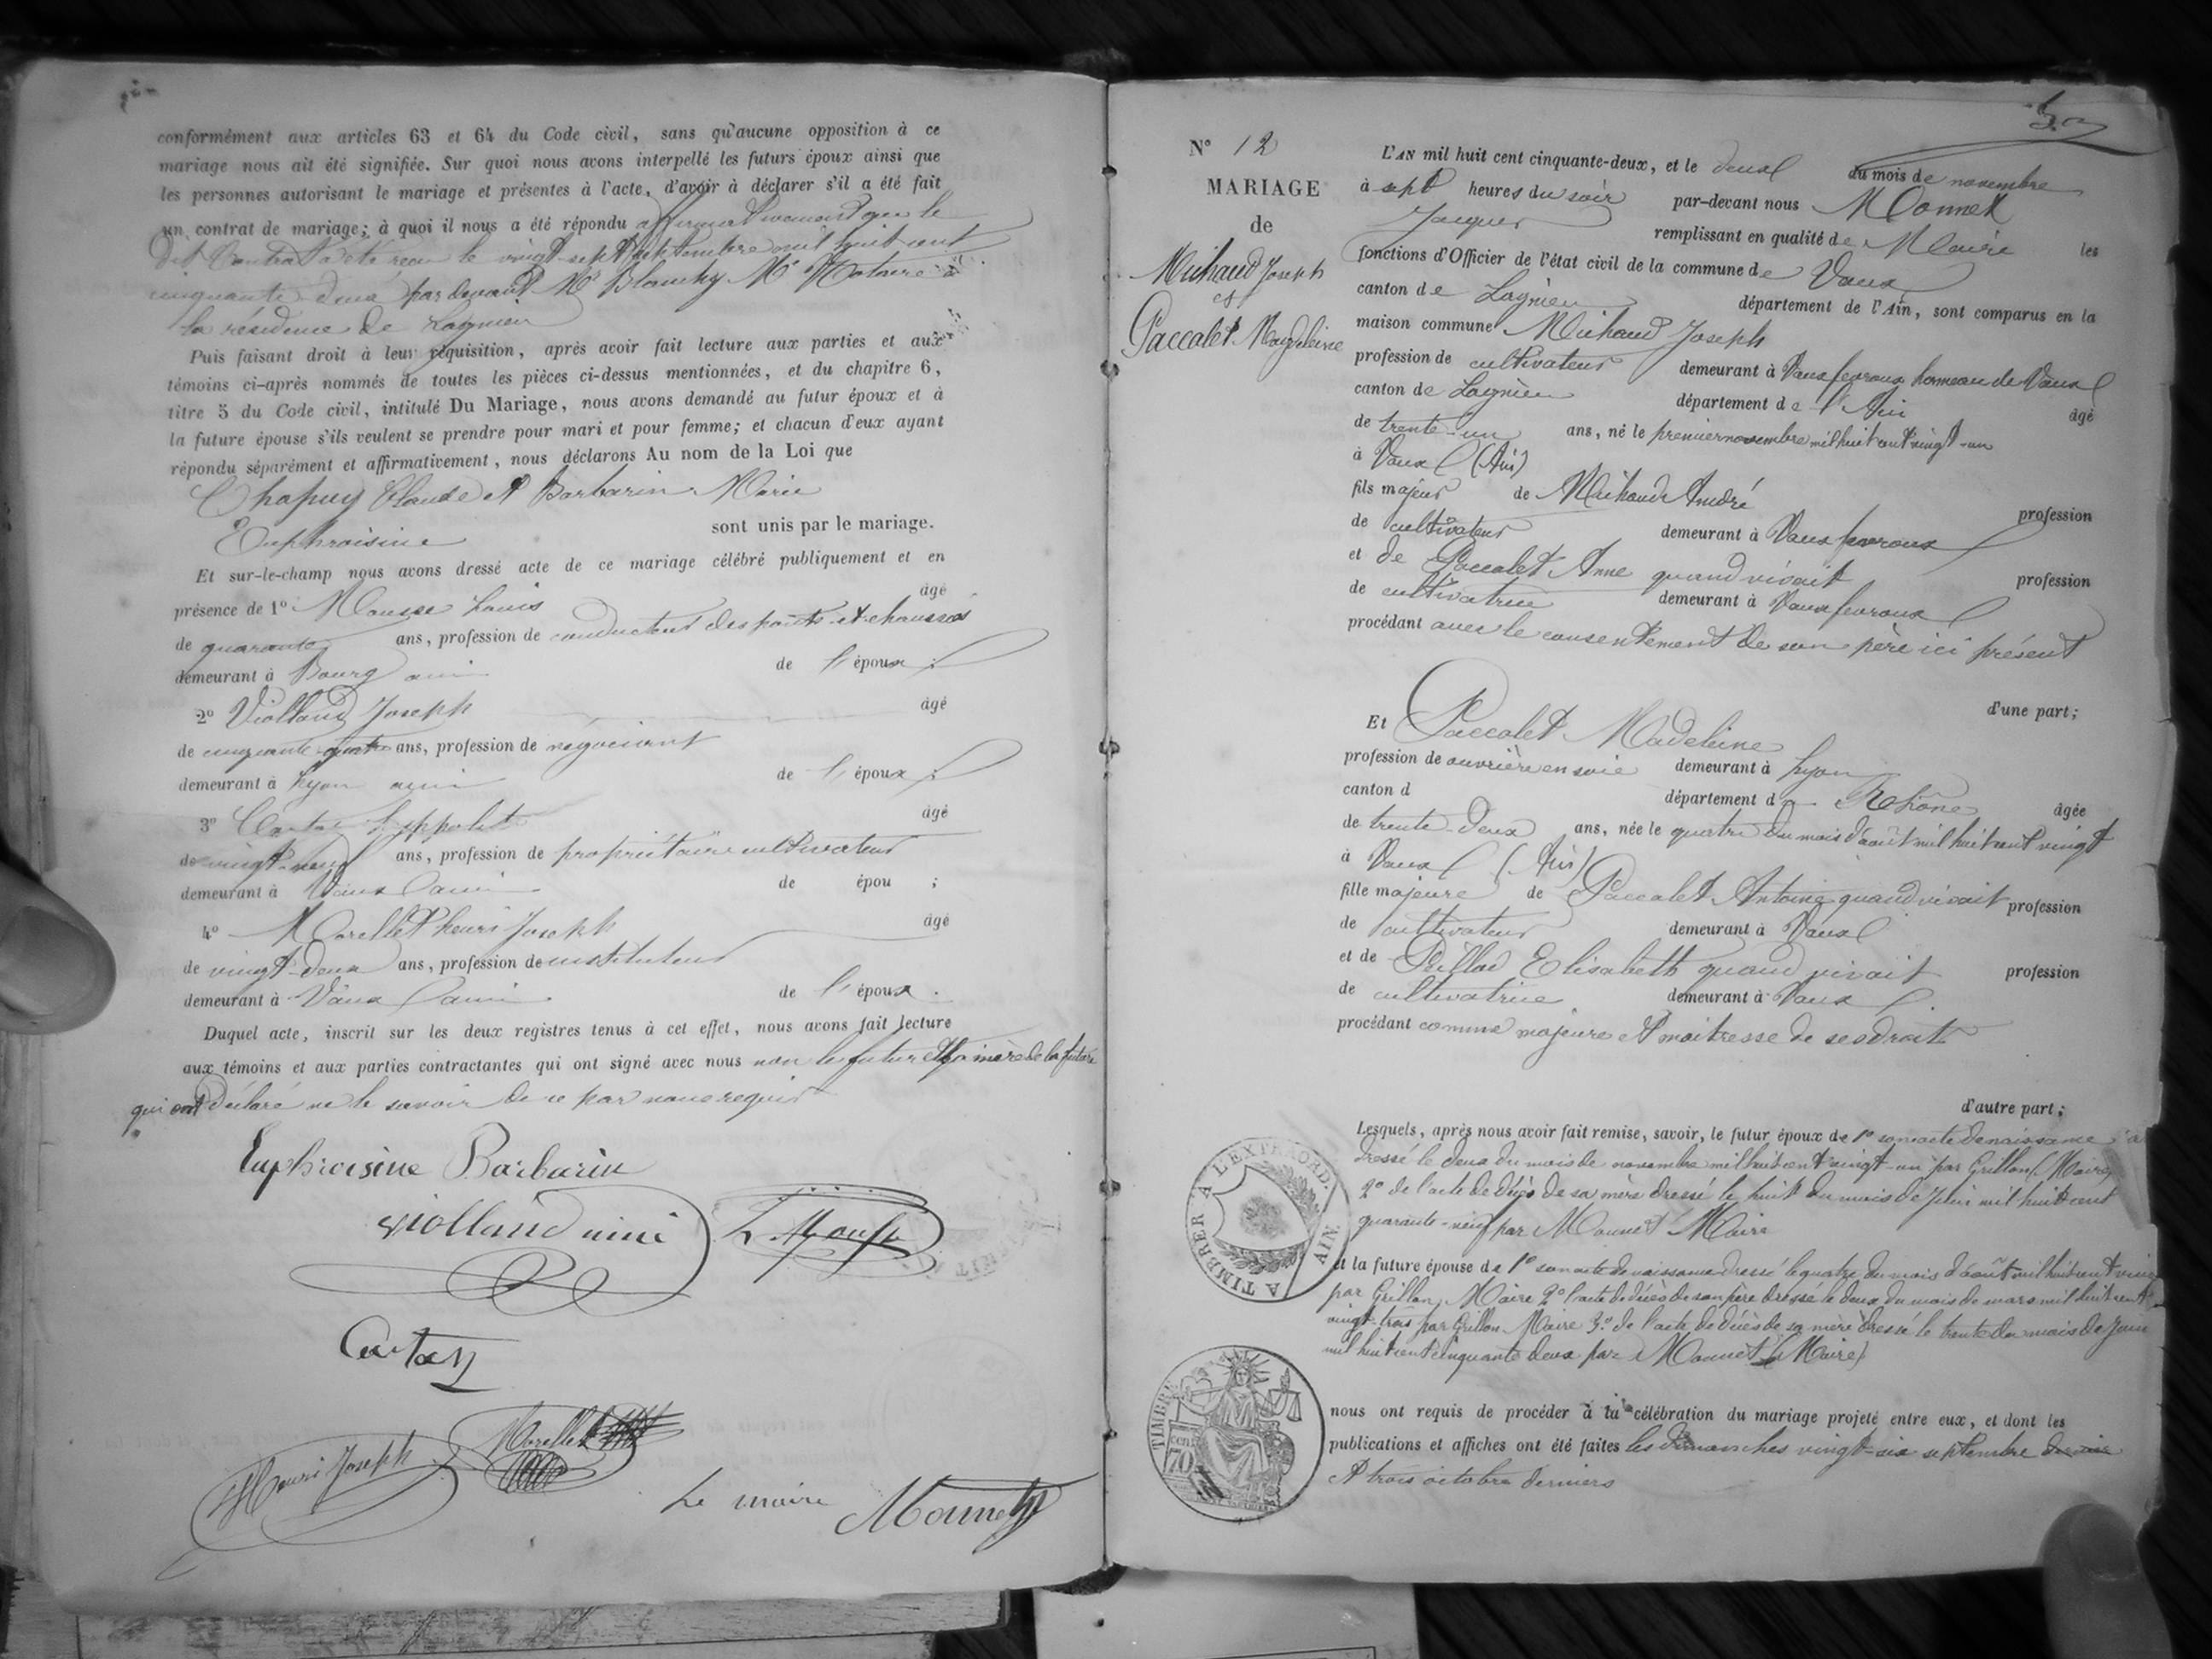 conformément aux articles 63 et 64 du Code civil, sans qu'aucune opposition à ce
mariage nous ait été signifiée. Sur quoi nous avons interpellé les futurs époux ainsi que
les personnes autorisant le mariage et présentes à l'acte, d'avoir à déclarer s'il a été fait
un contrat de mariage; à quoi il nous a été répondu affirmativement que le
dit Contrat a été recu le vingt-sept septembre mil huit cent
cinquante deux par devant Me Blanchy Me Notaire à
la résidence de Lagnieu
Puis faisant droit à leur réquisition, après avoir fait lecture aux parties et aux
témoins ci-après nommés de toutes les pièces ci-dessus mentionnées, et du chapitre 6,
titre 5 du Code civil, intitulé Du Mariage, nous avons demandé au futur époux et à
la future épouse s'ils veulent se prendre pour mari et pour femme; et chacun d'eux ayant
répondu séparément et affirmativement, nous déclarons Au nom de la Loi que
Chapuy Claude et Barbarin Marie
Euphroisine sont unis par le mariage.
Et sur-le-champ nous avons dressé acte de ce mariage célébré publiquement et en
présence de 1º Louis âgé
de quarante ans, profession de conducteur des ponts et chaussés
demeurant à Bourg ami de l'époux ;
2º Viollaud Joseph âgé
de cinquante-quatre ans, profession de négociant
demeurant à Lyon ami de l'époux ;
3º hippolite âgé
de vingt-neuf ans, profession de propriétaire cultivateur
demeurant à Vaux ami de épou ;
4º Morellet henri Joseph âgé
de vingt-deux ans, profession de instituteur
demeurant à Vaux ami de l'époux .
Duquel acte, inscrit sur les deux registres tenus à cet effet, nous avons fait lecture
aux témoins et aux parties contractantes qui ont signé avec nous non le futur et la mère de la future
qui ont déclaré ne le savoir de ce par nous requis
Euphroisine Barbarin
viollaud
L
Henri Joseph Morellet
Le maire Monnet
50
Nº 12
MARIAGE
de
Michaud Joseph
et
Paccalet Magdeleine
L'AN mil huit cent cinquante-deux, et le deux du mois de novembre
à sept heures du soir par-devant nous Monnet
Jacques remplissant en qualité de Maire les
fonctions d'Officier de l'état civil de la commune de Vaux
canton de Lagnieu département de l'Ain, sont comparus en la
maison commune Michaud Joseph
profession de cultivateur demeurant à Vaux fevroux hameau de Vaux
canton de Lagnieu département de l'Ain âgé
de trente-un ans, né le premier novembre mil huit cent vingt-un
à Vaux (Ain)
fils majeur de Michaud André profession
de cultivateur demeurant à Vaux fevroux
et de Paccalet Anne quand vivait profession
de cultivatrice demeurant à Vaux fevroux
procédant avec le consentement de son père ici présent
d'une part;
Et Paccalet Madeleine
profession de ouvrière en soie demeurant à Lyon
canton d département du Rhône âgée
de trente-deux ans, née le quatre du mois d'août mil huit cent vingt
à Vaux (Ain)
fille majeure de Paccalet Antoine quand vivait profession
de cultivateur demeurant à Vaux
et de Elisabeth quand vivait profession
de cultivatrice demeurant à Vaux
procédant comme majeure et maitresse de ses droits
d'autre part;
Lesquels, après nous avoir fait remise, savoir, le futur époux de 1º son acte de naissance
dressé le deux du mois de novembre mil huit cent vingt-un par Grillon (Maire)
2º de l'acte de décès de sa mère dressé le huit du mois de Juin mil huit cent
quarante-neuf par Monnet Maire
et la future épouse de 1º son acte de naissance dressé le quatre du mois d'août mil huit cent vingt
par Grillon, Maire 2º l'acte de décès de son père dressé le deux du mois de mars mil huit cent
vingt-trois par Grillon Maire 3º de l'acte de décès de sa mère dressé le trente du mois de Juin
mil huit cent cinquante deux par Monnet (Maire)
nous ont requis de procéder à la célébration du mariage projeté entre eux, et dont les
publications et affiches ont été faites les dimanches vingt-six septembre dernier
et trois octobre derniers
A TIMBRER A L'EXTRAORD. AIN.
TIMBRE
cent 70